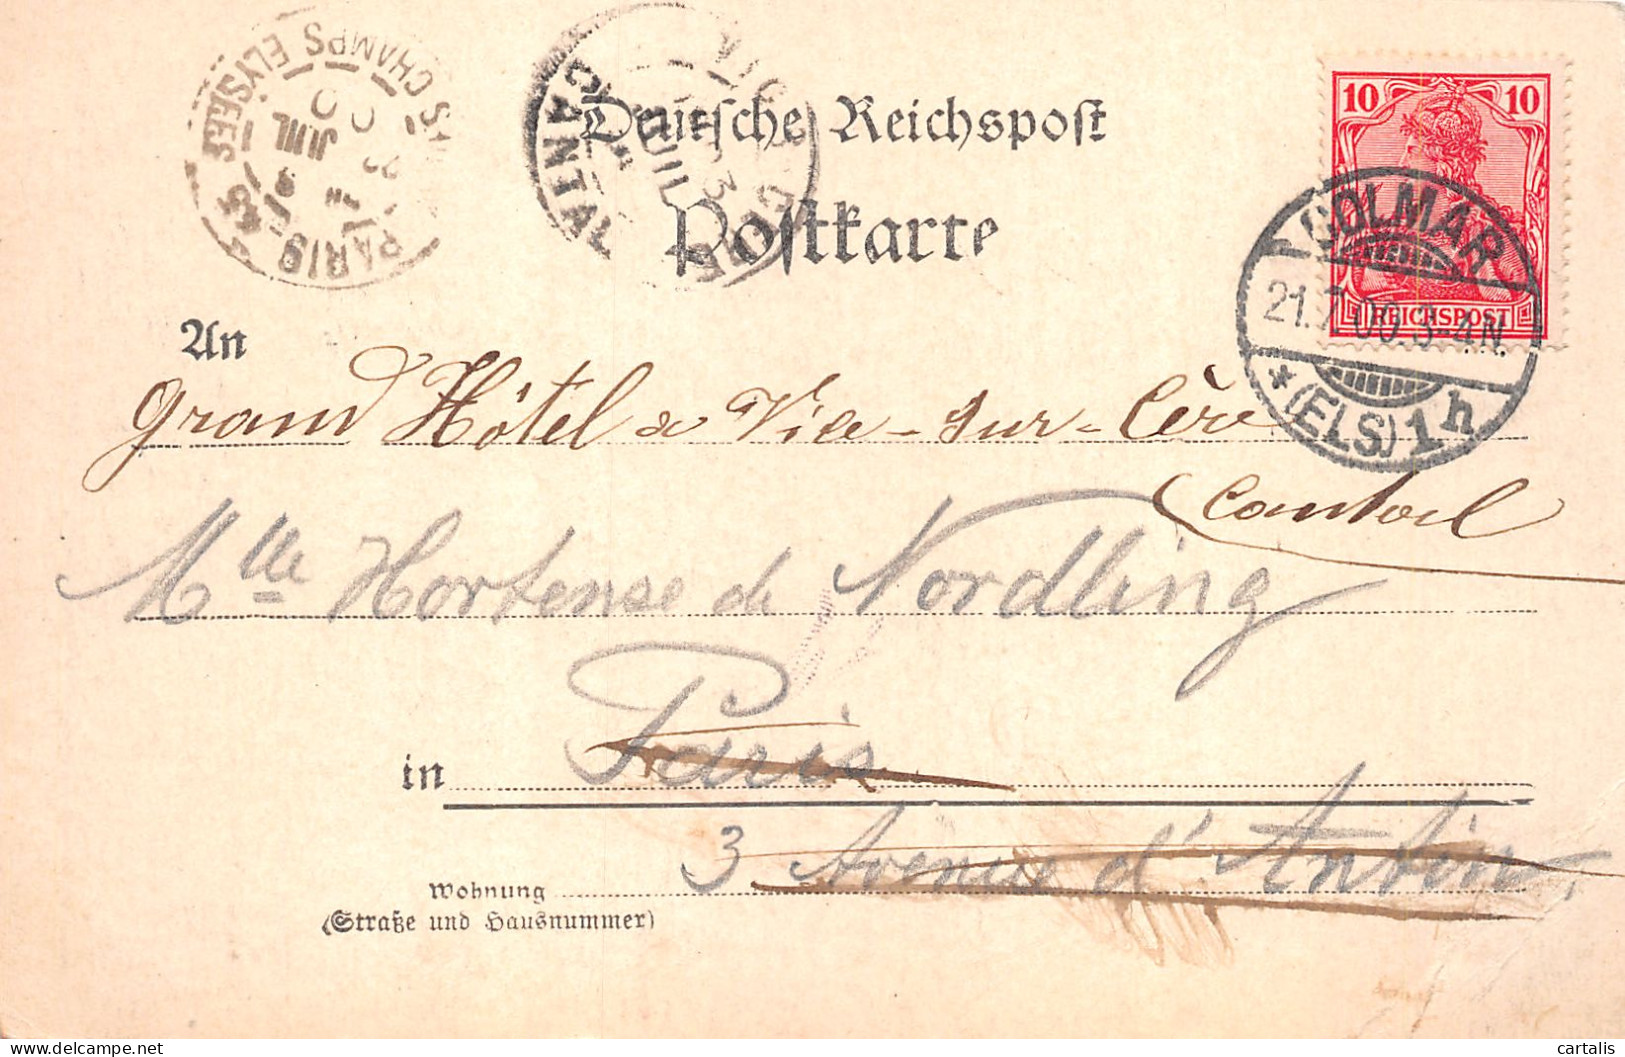 PARIS 43
CHAMPS ELYSÉES
CANTAL
JUIL
Deutsche Reichspost
Postkarte
10 10
REICHSPOST
COLMAR
21.7.00.3-4N.
* (ELS) 1h
An
Grand Hôtel à Vic-sur-Cère
Cantal
Mlle Hortense de Nordling
in Paris
3 Avenue d'Antin
Wohnung
(Straße und Hausnummer)
cartalis